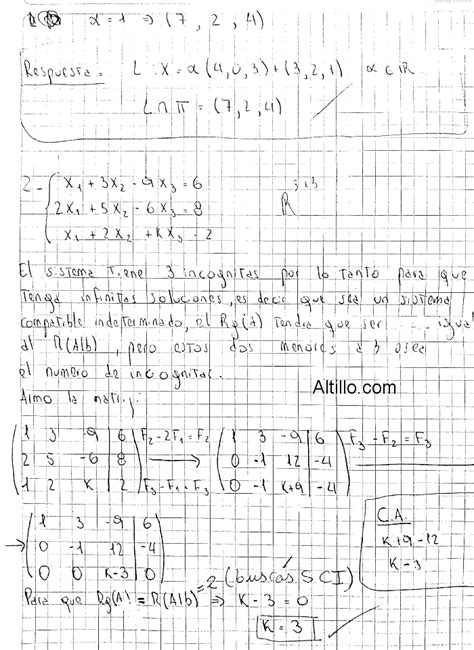 α = 1 ⇒ (7, 2, 4)
Respuesta: L: X = α(4,0,3) + (3,2,1) α ∈ IR
L ∩ π = (7,2,4)
2- { x1 + 3x2 - 9x3 = 6
2x1 + 5x2 - 6x3 = 8
x1 + 2x2 + kx3 = 2
El sistema tiene 3 incognitas por lo tanto para que
tenga infinitas soluciones, es decir que sea un sistema
compatible indeterminado, el Rg(A) tendria que ser igual
al R(A|b), pero estos dos menores a 3 osea
el numero de incognitas.
Altillo.com
Armo la matriz:
( 1 3 -9 | 6 ) F2 - 2F1 = F2 ( 1 3 -9 | 6 ) F3 - F2 = F3
( 2 5 -6 | 8 ) → ( 0 -1 12 | -4 )
( 1 2 k | 2 ) F3 - F1 = F3 ( 0 -1 k+9 | -4 )
C.A.
k+9-12
k-3
→ ( 1 3 -9 | 6 )
( 0 -1 12 | -4 )
( 0 0 k-3 | 0 )
Para que Rg(A) = R(A|b) = 2 (buscás SCI) ⇒ k-3 = 0
k = 3